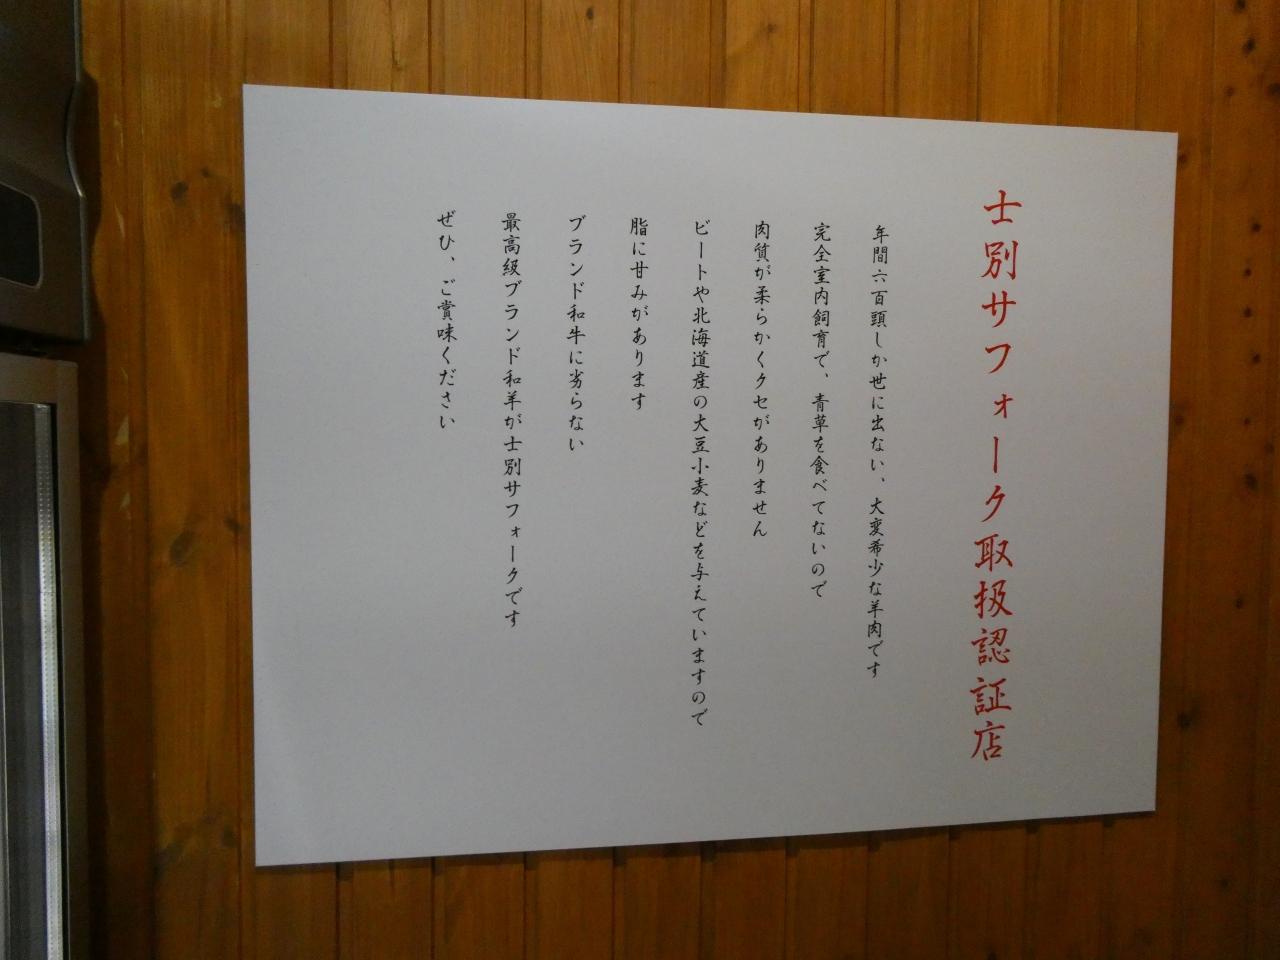 士別サフォーク取扱認証店
年間六百頭しか世に出ない、大変希少な羊肉です
完全室内飼育で、青草を食べてないので
肉質が柔らかくクセがありません
ビートや北海道産の大豆小麦などを与えていますので
脂に甘みがあります
ブランド和牛に劣らない
最高級ブランド和羊が士別サフォークです
ぜひ、ご賞味ください